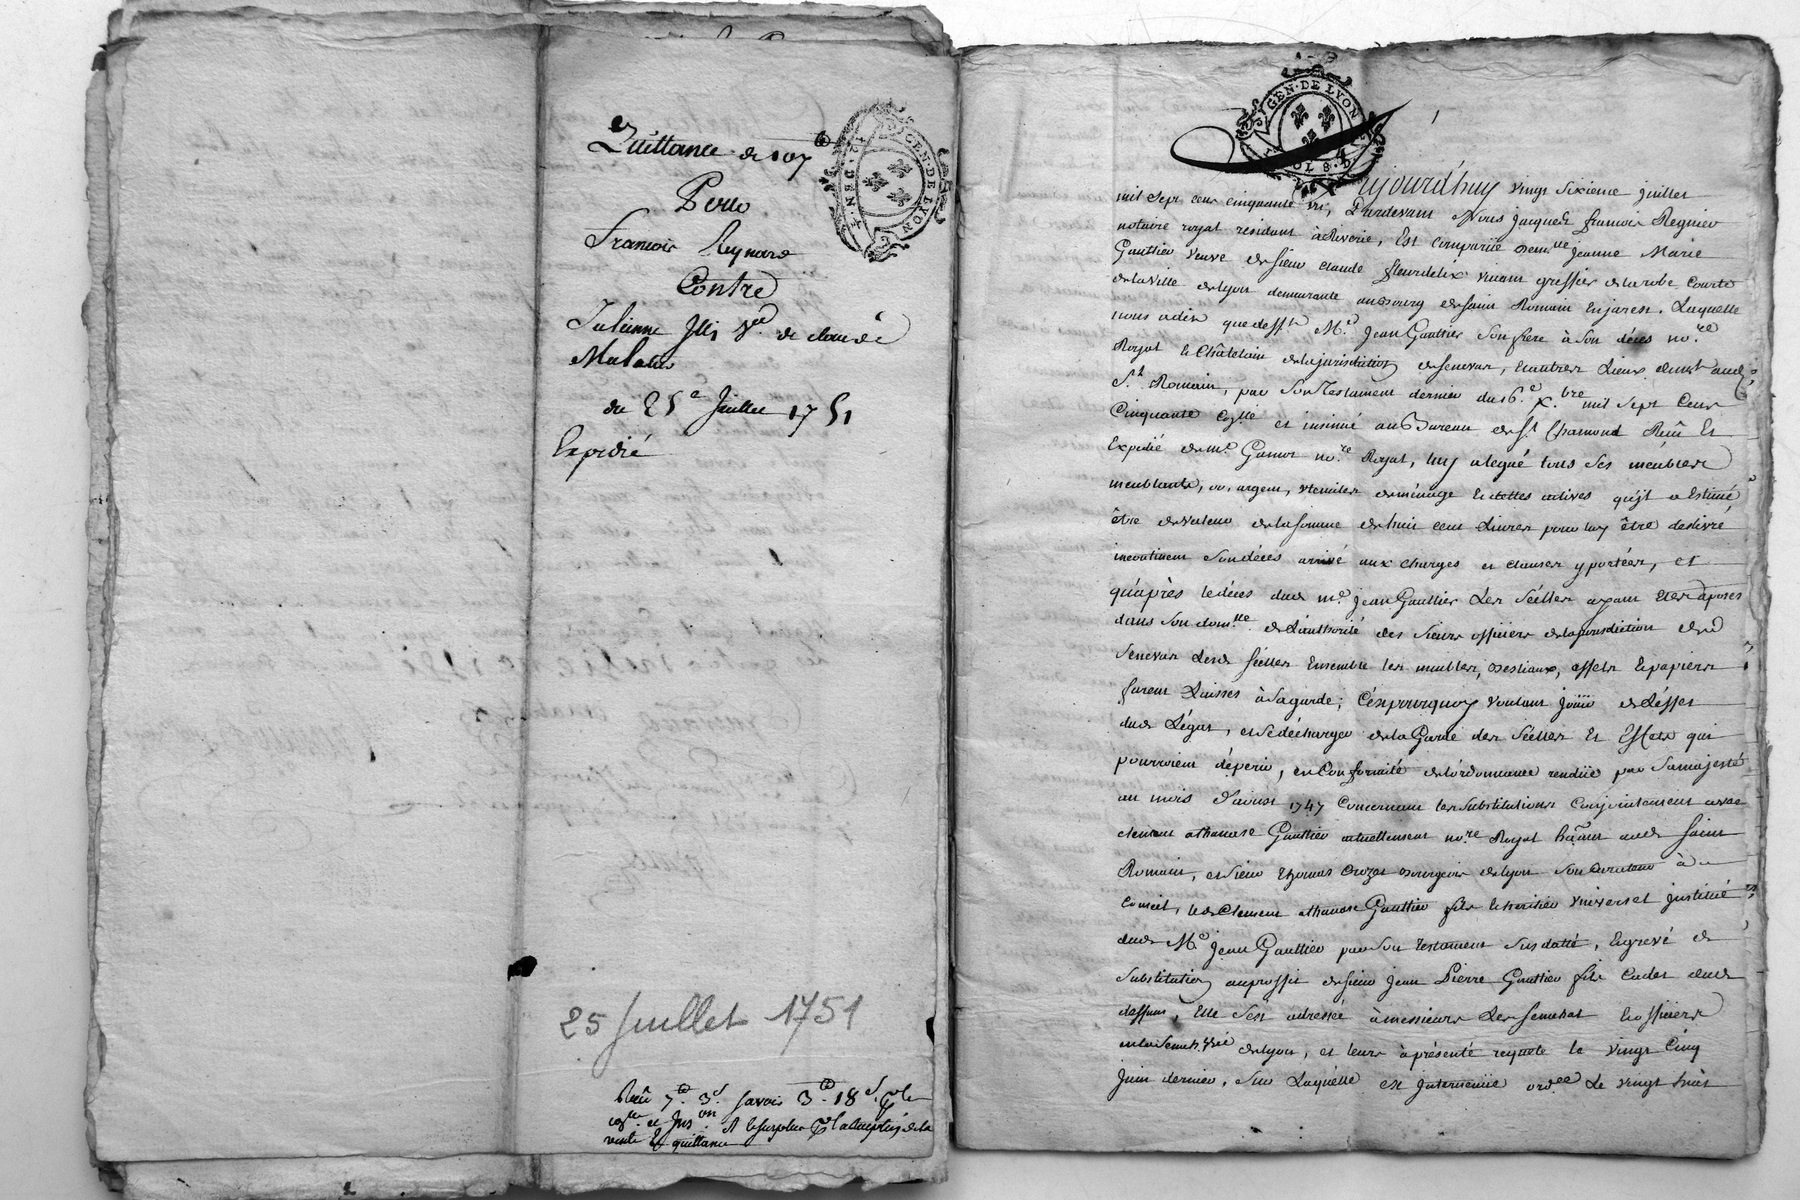 Quittance de 107ᵗᵗ
Pour
François Reynard
Contre
Julienne Jlli vᵉ de claude
du 25ᵉ Juillet 1751
Expedié
25 Juillet 1751
Reçû 7ᵗᵗ 3ˢ savoir 3ᵗᵗ 18ˢ
vente & quittance
GEN·DE LYON
GEN·DE LYON
aujourd'huy vingt sixieme juillet
mil sept cens cinquante un, Pardevant Nous jacques françois Regnier
notaire royal residant à Riverie, Est Comparüe demˡˡᵉ jeanne Marie
Gaultier veuve de sieur claude fleurdelix vivant greffier de la robe Courte
de la ville de lyon demeurante au bourg de saint Romain En jarest. Laquelle
nous a dit que deffᵗ Mᵉ jean Gaultier son frere à son décès noʳᵉ
Royal & Châtelain de la jurisdiction de senevas, & autres Lieux
Sᵗ Romain, par son Testament dernier du 16ᵉ Xᵇʳᵉ mil sept Cens
Cinquante et insinué au Bureau de Sᵗ Chamond Reçû Et
Expedié de mᵉ noʳᵉ Royal, luy a legué tous ses meubles
meublants, or, argent, vtensiles de ménage & dettes actives qu'jl a Estimé
être de valeur de la somme de huit cens Livres pour luy être deslivré
incontinent son décès arrivé aux charges et clauses y portées, et
qu'après le décès dud mᵉ jean Gaultier Les séelles ayant Etés aposés
dans son domˡˡᵉ de L'authorité des sieurs officiers de la jurisdiction dud
Senevas Lesd séelles Ensemble les meubles, bestiaux, effets & papiers
furent Laissés à sa garde; C'est pourquoy voulant joüir de L'effet
dud Légat, et se décharger de la Garde des séelles Et Effets qui
pourroient déperir, en Conformité de l'ordonnance rendüe par sa majesté
au mois d'aoust 1747 Concernant les substitutions Conjointement avec
clement athanase Gaultier actuellement noʳᵉ Royal aud saint
Romain, et sieur thomas Crozet bourgeois de lyon son Curateur à
Conseil, led Clement athanase Gaultier fils & heritier vniversel jnstitué
dud Mᵉ jean Gaultier par son testament susdatté, & grevé de
Substitution au proffit de sieur jean Pierre Gaultier fils Cadet dud
deffunt, Elle s'est adressée à messieurs Les senechal & officiers
en la Senechᵉᵉ de lyon, et leurs à présenté requete le vingt Cinq
juin dernier, sur Laquelle est jntervenüe ordᶜᵉ Le vingt huit